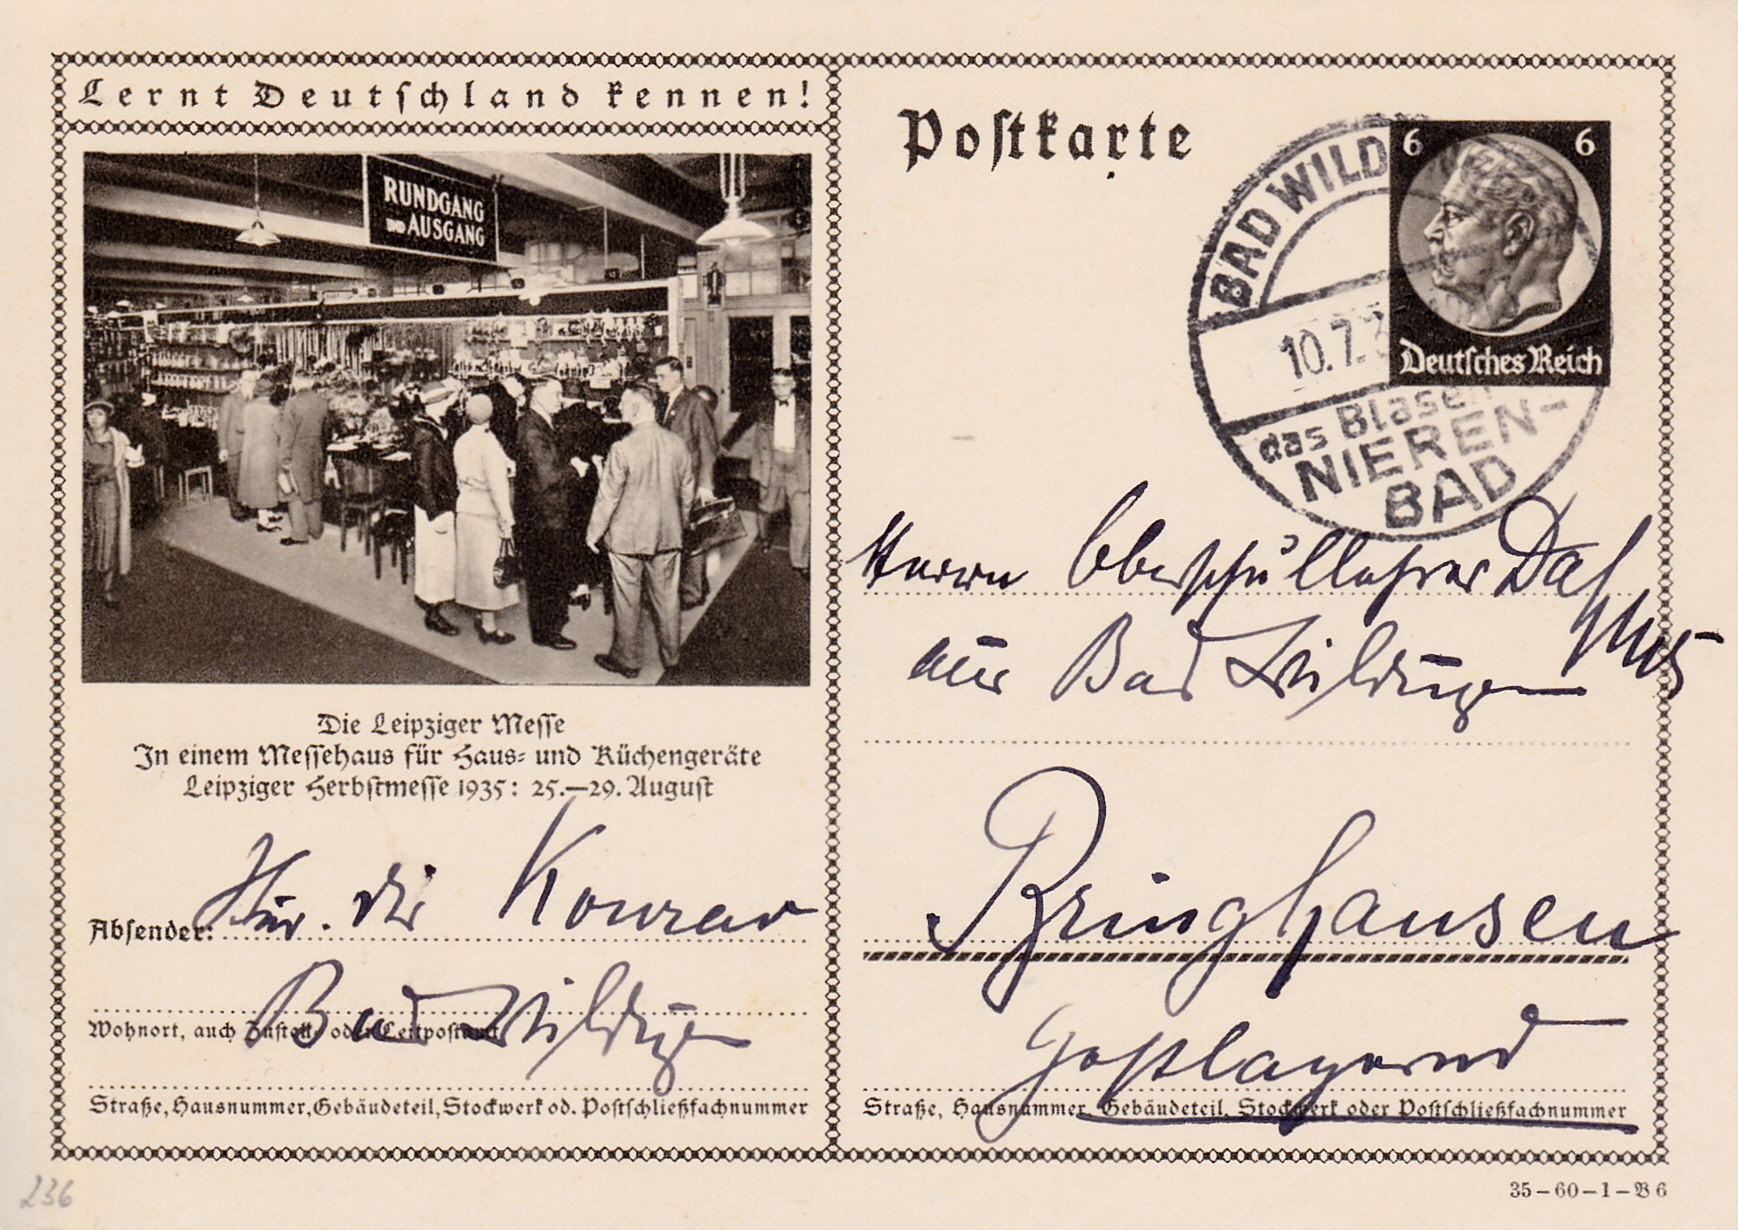 Lernt Deutschland kennen!
RUNDGANG
AUSGANG
Die Leipziger Messe
In einem Messehaus für Haus- und Küchengeräte
Leipziger Herbstmesse 1935: 25.—29. August
Absender: Konrad
Bad Wildungen
Wohnort, auch Zustell- oder Leitpostamt
Straße, Hausnummer, Gebäudeteil, Stockwerk od. Postschließfachnummer
236
Postkarte
6 6
Deutsches Reich
BAD WILD
10.7.3
das Blasen
NIEREN-
BAD
Herrn Oberschullehrer
aus Bad Wildungen
Bringhausen
Postlagernd
Straße, Hausnummer, Gebäudeteil, Stockwerk oder Postschließfachnummer
35–60–1–B6